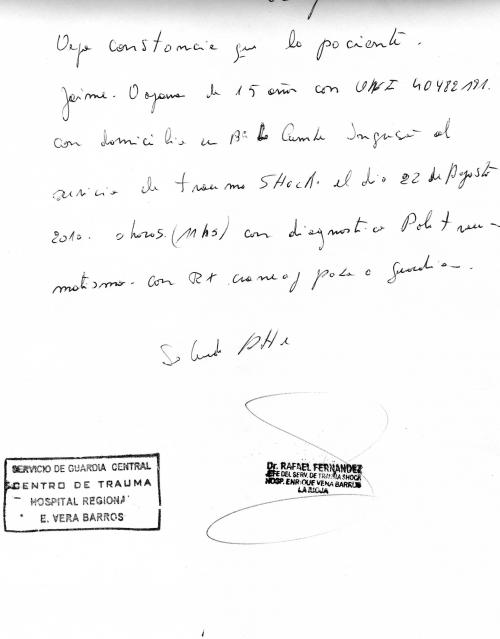 Dejo constancia que la paciente.
Jaime. Dayana de 15 años con DNI 40482181.
con domicilio en Bº La Cumbre Ingresó al
servicio de trauma SHock. el dia 22 de Agosto
2010. ahoras. (11 hs) con diagnostico Politrau-
matismo. con RX craneo y pasa a guardia.
Saluda Atte
SERVICIO DE GUARDIA CENTRAL
CENTRO DE TRAUMA
HOSPITAL REGIONAL
E. VERA BARROS
Dr. RAFAEL FERNANDEZ
JEFE DEL SERV. DE TRAUMA SHOCK
HOSP. ENRIQUE VERA BARROS
LA RIOJA